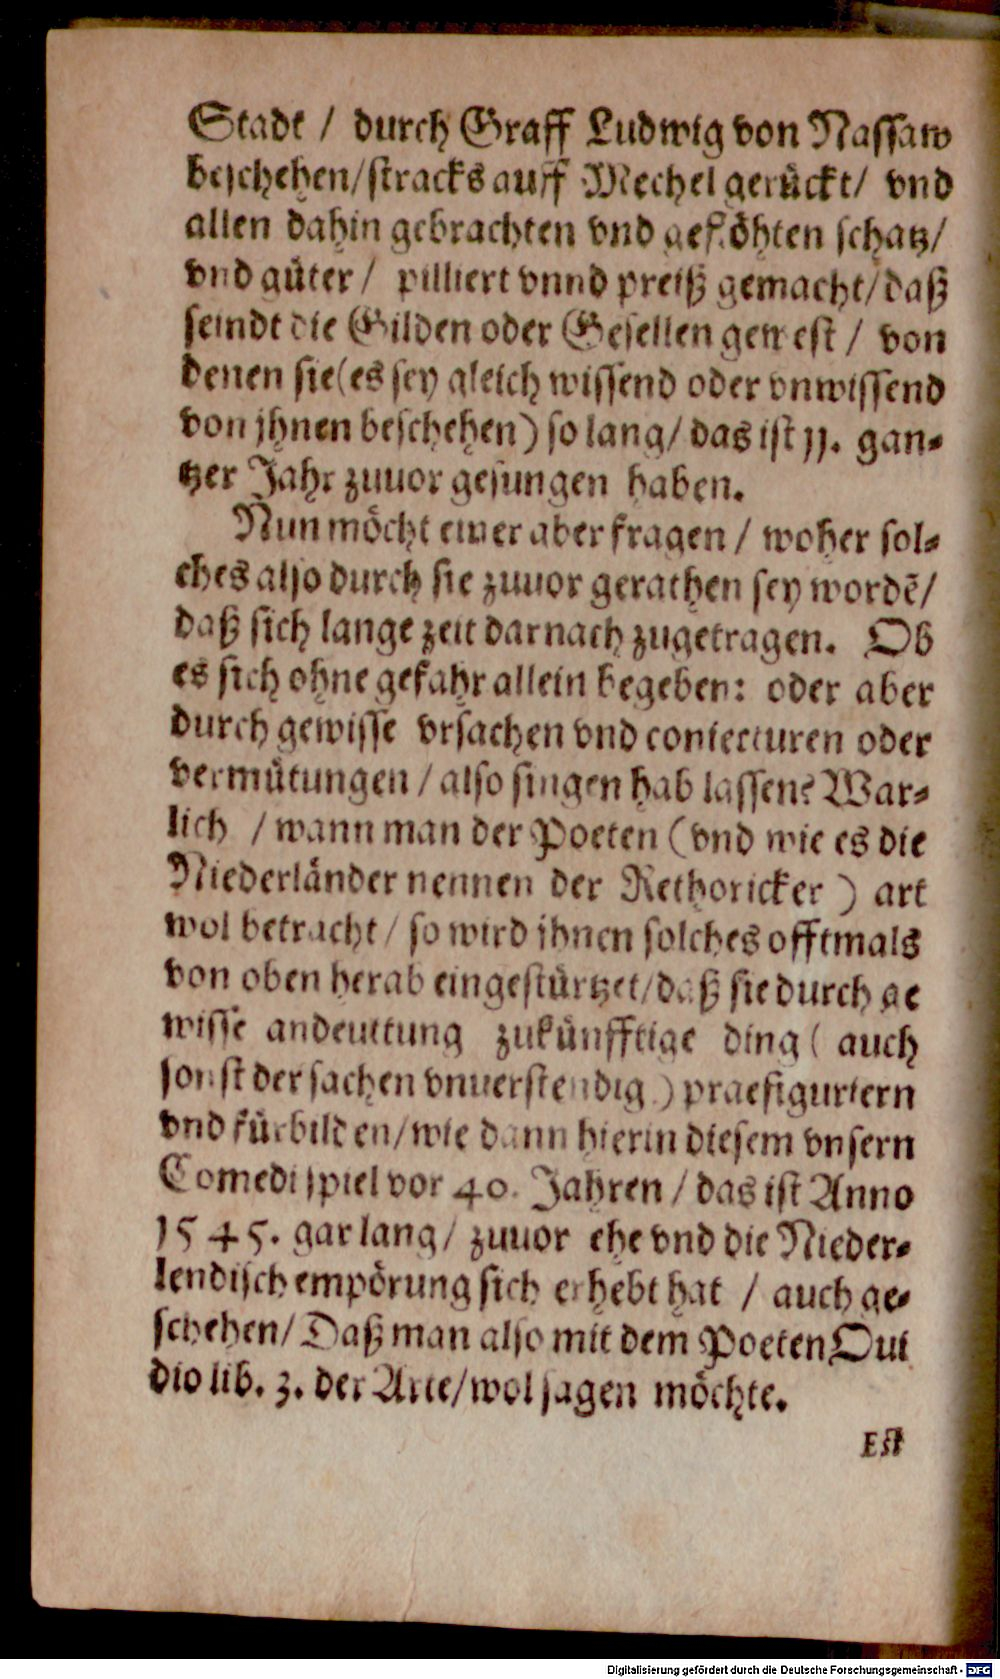 Stadt / durch Graff Ludwig von Nassaw
beschehen/stracks auff Mechel gerückt/ vnd
allen dahin gebrachten vnd geflöhten schatz/
vnd güter / pilliert vnnd preiß gemacht/daß
seindt die Gilden oder Gesellen gewest / von
denen sie(es sey gleich wissend oder vnwissend
von jhnen beschehen) so lang/ das ist 11. gan-
tzer Jahr zuuor gesungen haben.
Nun möcht einer aber fragen / woher sol-
ches also durch sie zuuor gerathen sey wordē/
daß sich lange zeit darnach zugetragen. Ob
es sich ohne gefahr allein begeben: oder aber
durch gewisse vrsachen vnd coniecturen oder
vermütungen / also singen hab lassen? War-
lich / wann man der Poeten (vnd wie es die
Niederländer nennen der Rethoricker ) art
wol betracht / so wird ihnen solches offtmals
von oben herab eingestürtzet/daß sie durch ge
wisse andeuttung zukünfftige ding ( auch
sonst der sachen vnuerstendig ) praefiguriern
vnd fürbilden/wie dann hierin diesem vnsern
Comedi spiel vor 40. Jahren / das ist Anno
1545. gar lang/ zuuor ehe vnd die Nieder-
lendisch empörung sich erhebt hat / auch ge-
schehen/ Daß man also mit dem Poeten Oui
dio lib. 3. der Arte/wol sagen möchte.
Est
Digitalisierung gefördert durch die Deutsche Forschungsgemeinschaft - DFG